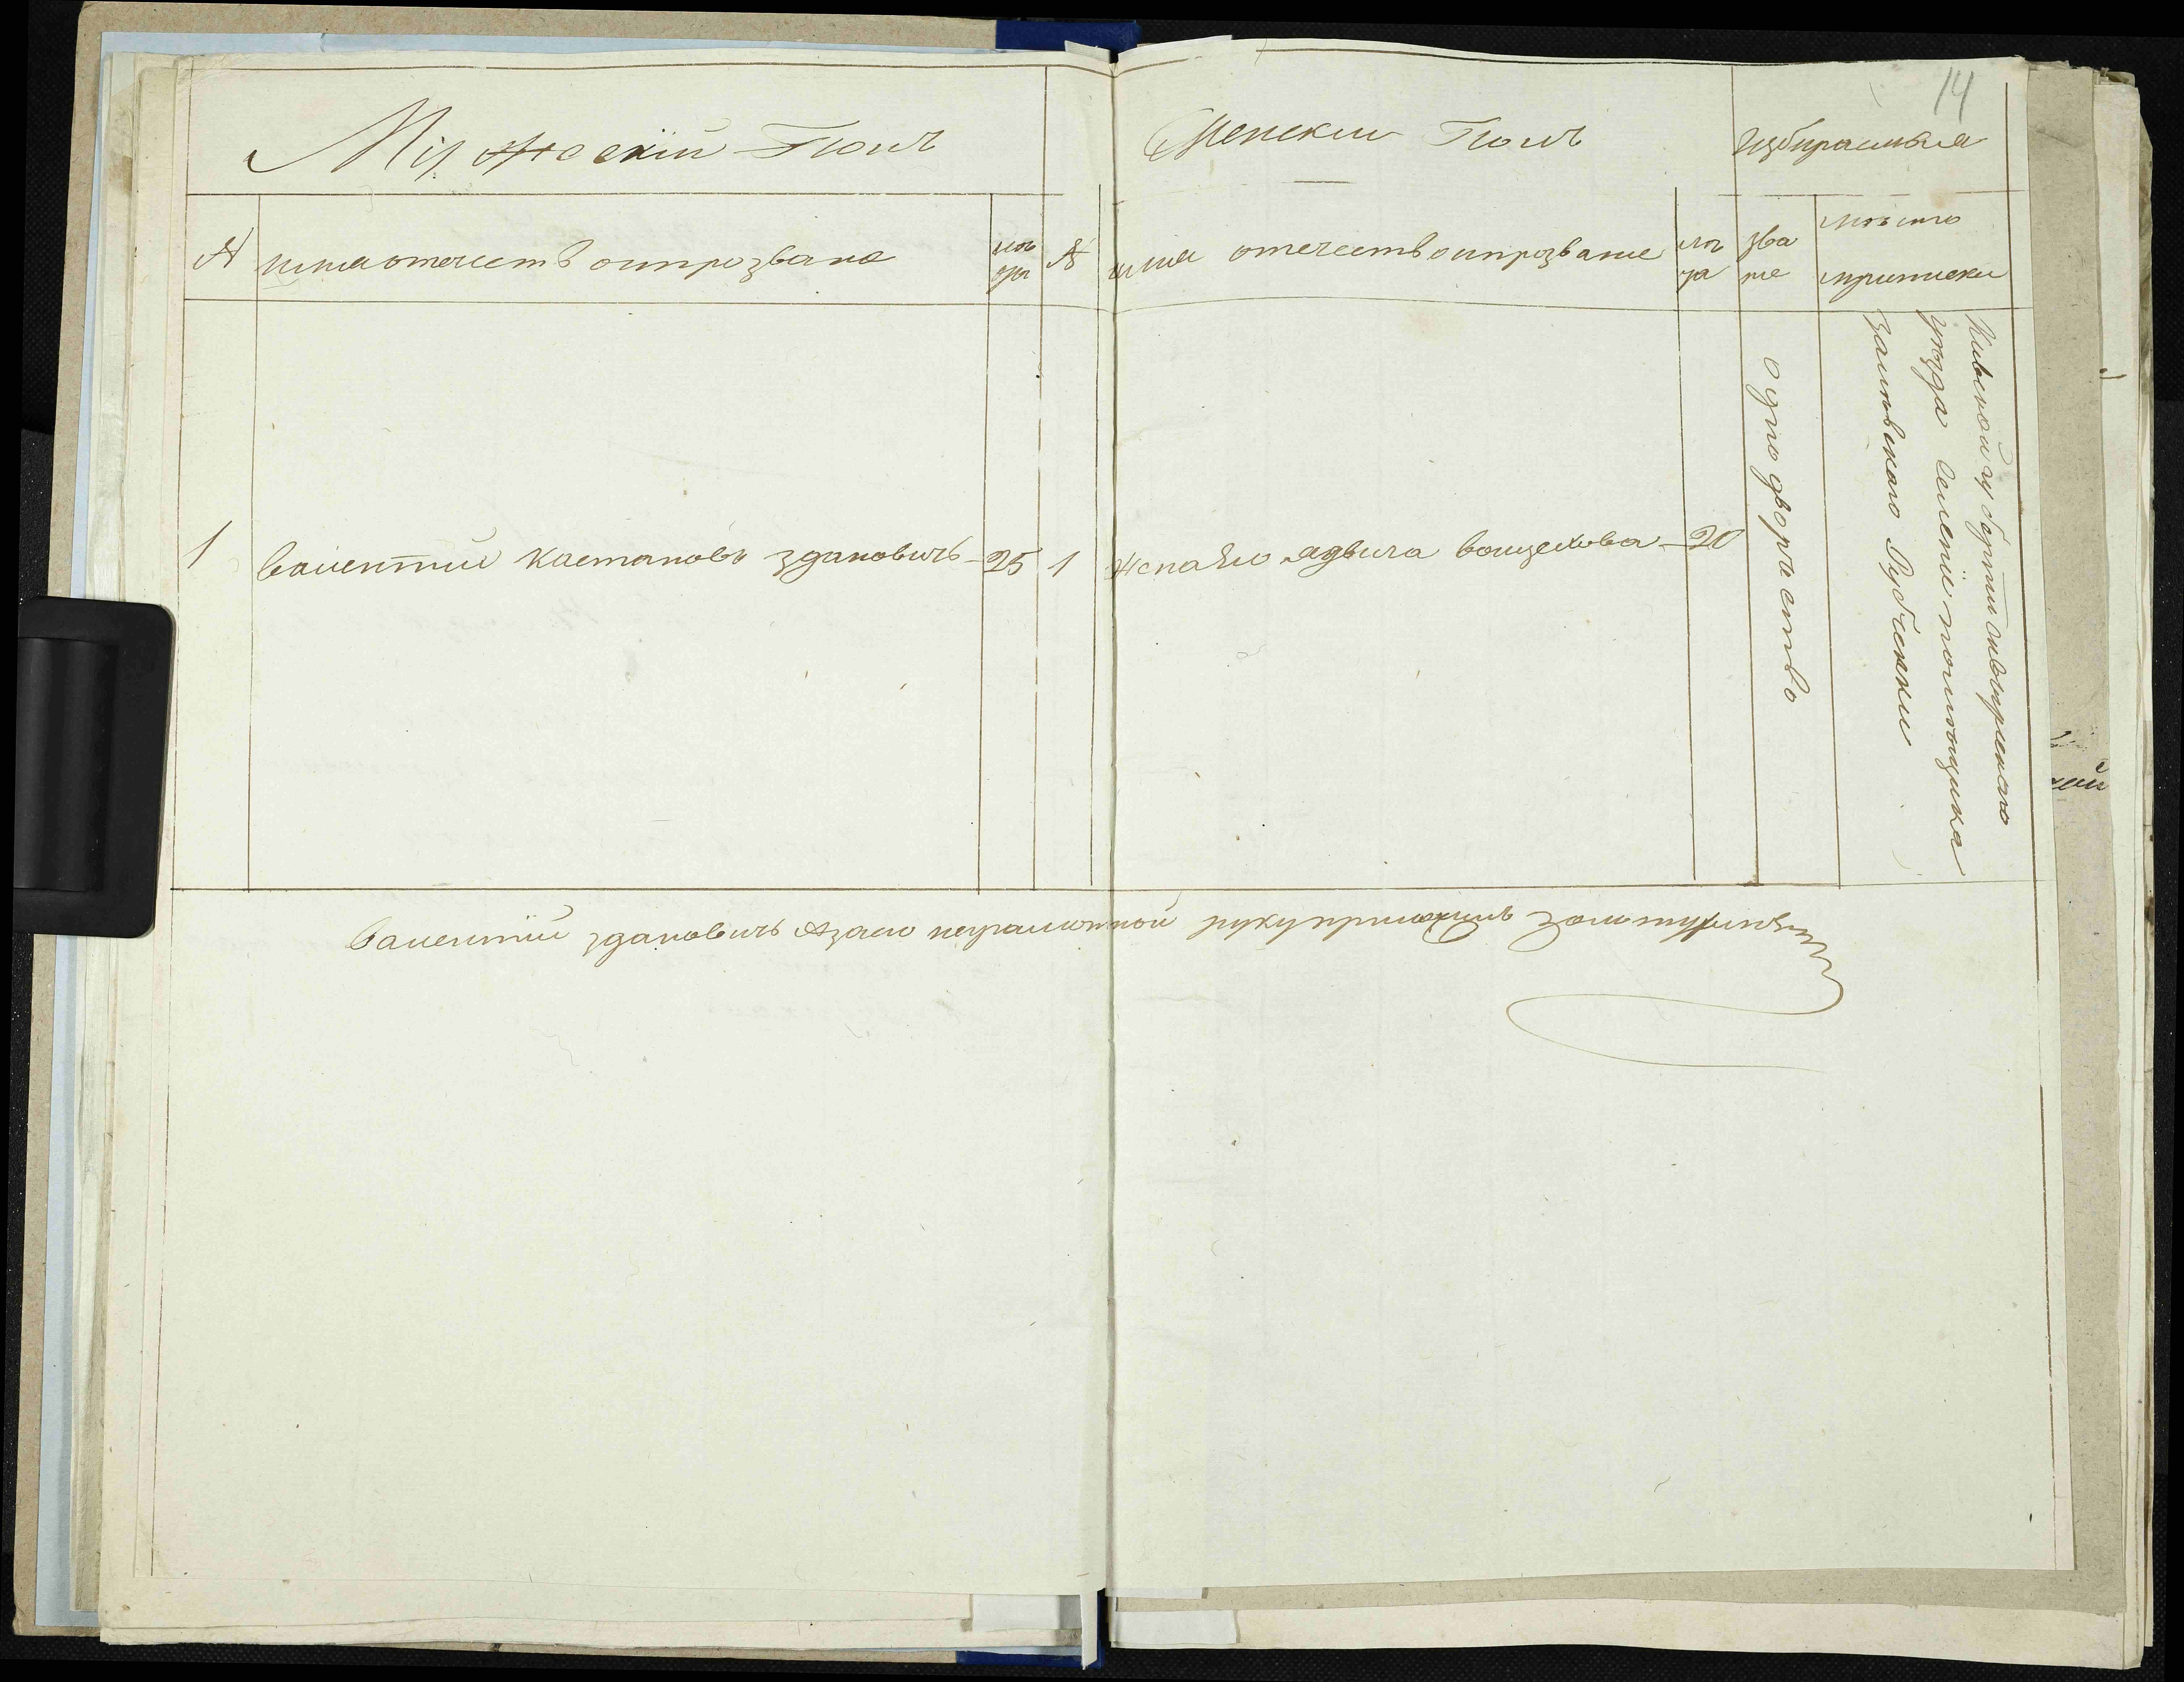 14
Мужескій Полъ
Женскии Полъ
Избираемыя
№
имя отечество и прозвание
лѣ
та
№
имя отечество и прозвание
лѣ
та
зва
ние
мѣсто
приписки
1
Валентии Каетановъ Здановичь 25
1
Жена Его Ядвига Войцехова 20
Однодворчество
Киевской губернии Сквирскаго
уѣзда селенія помѣщика
Залѣвскаго Рубченки
Валентіи Здановичь а за его неграмотной руку приложилъ